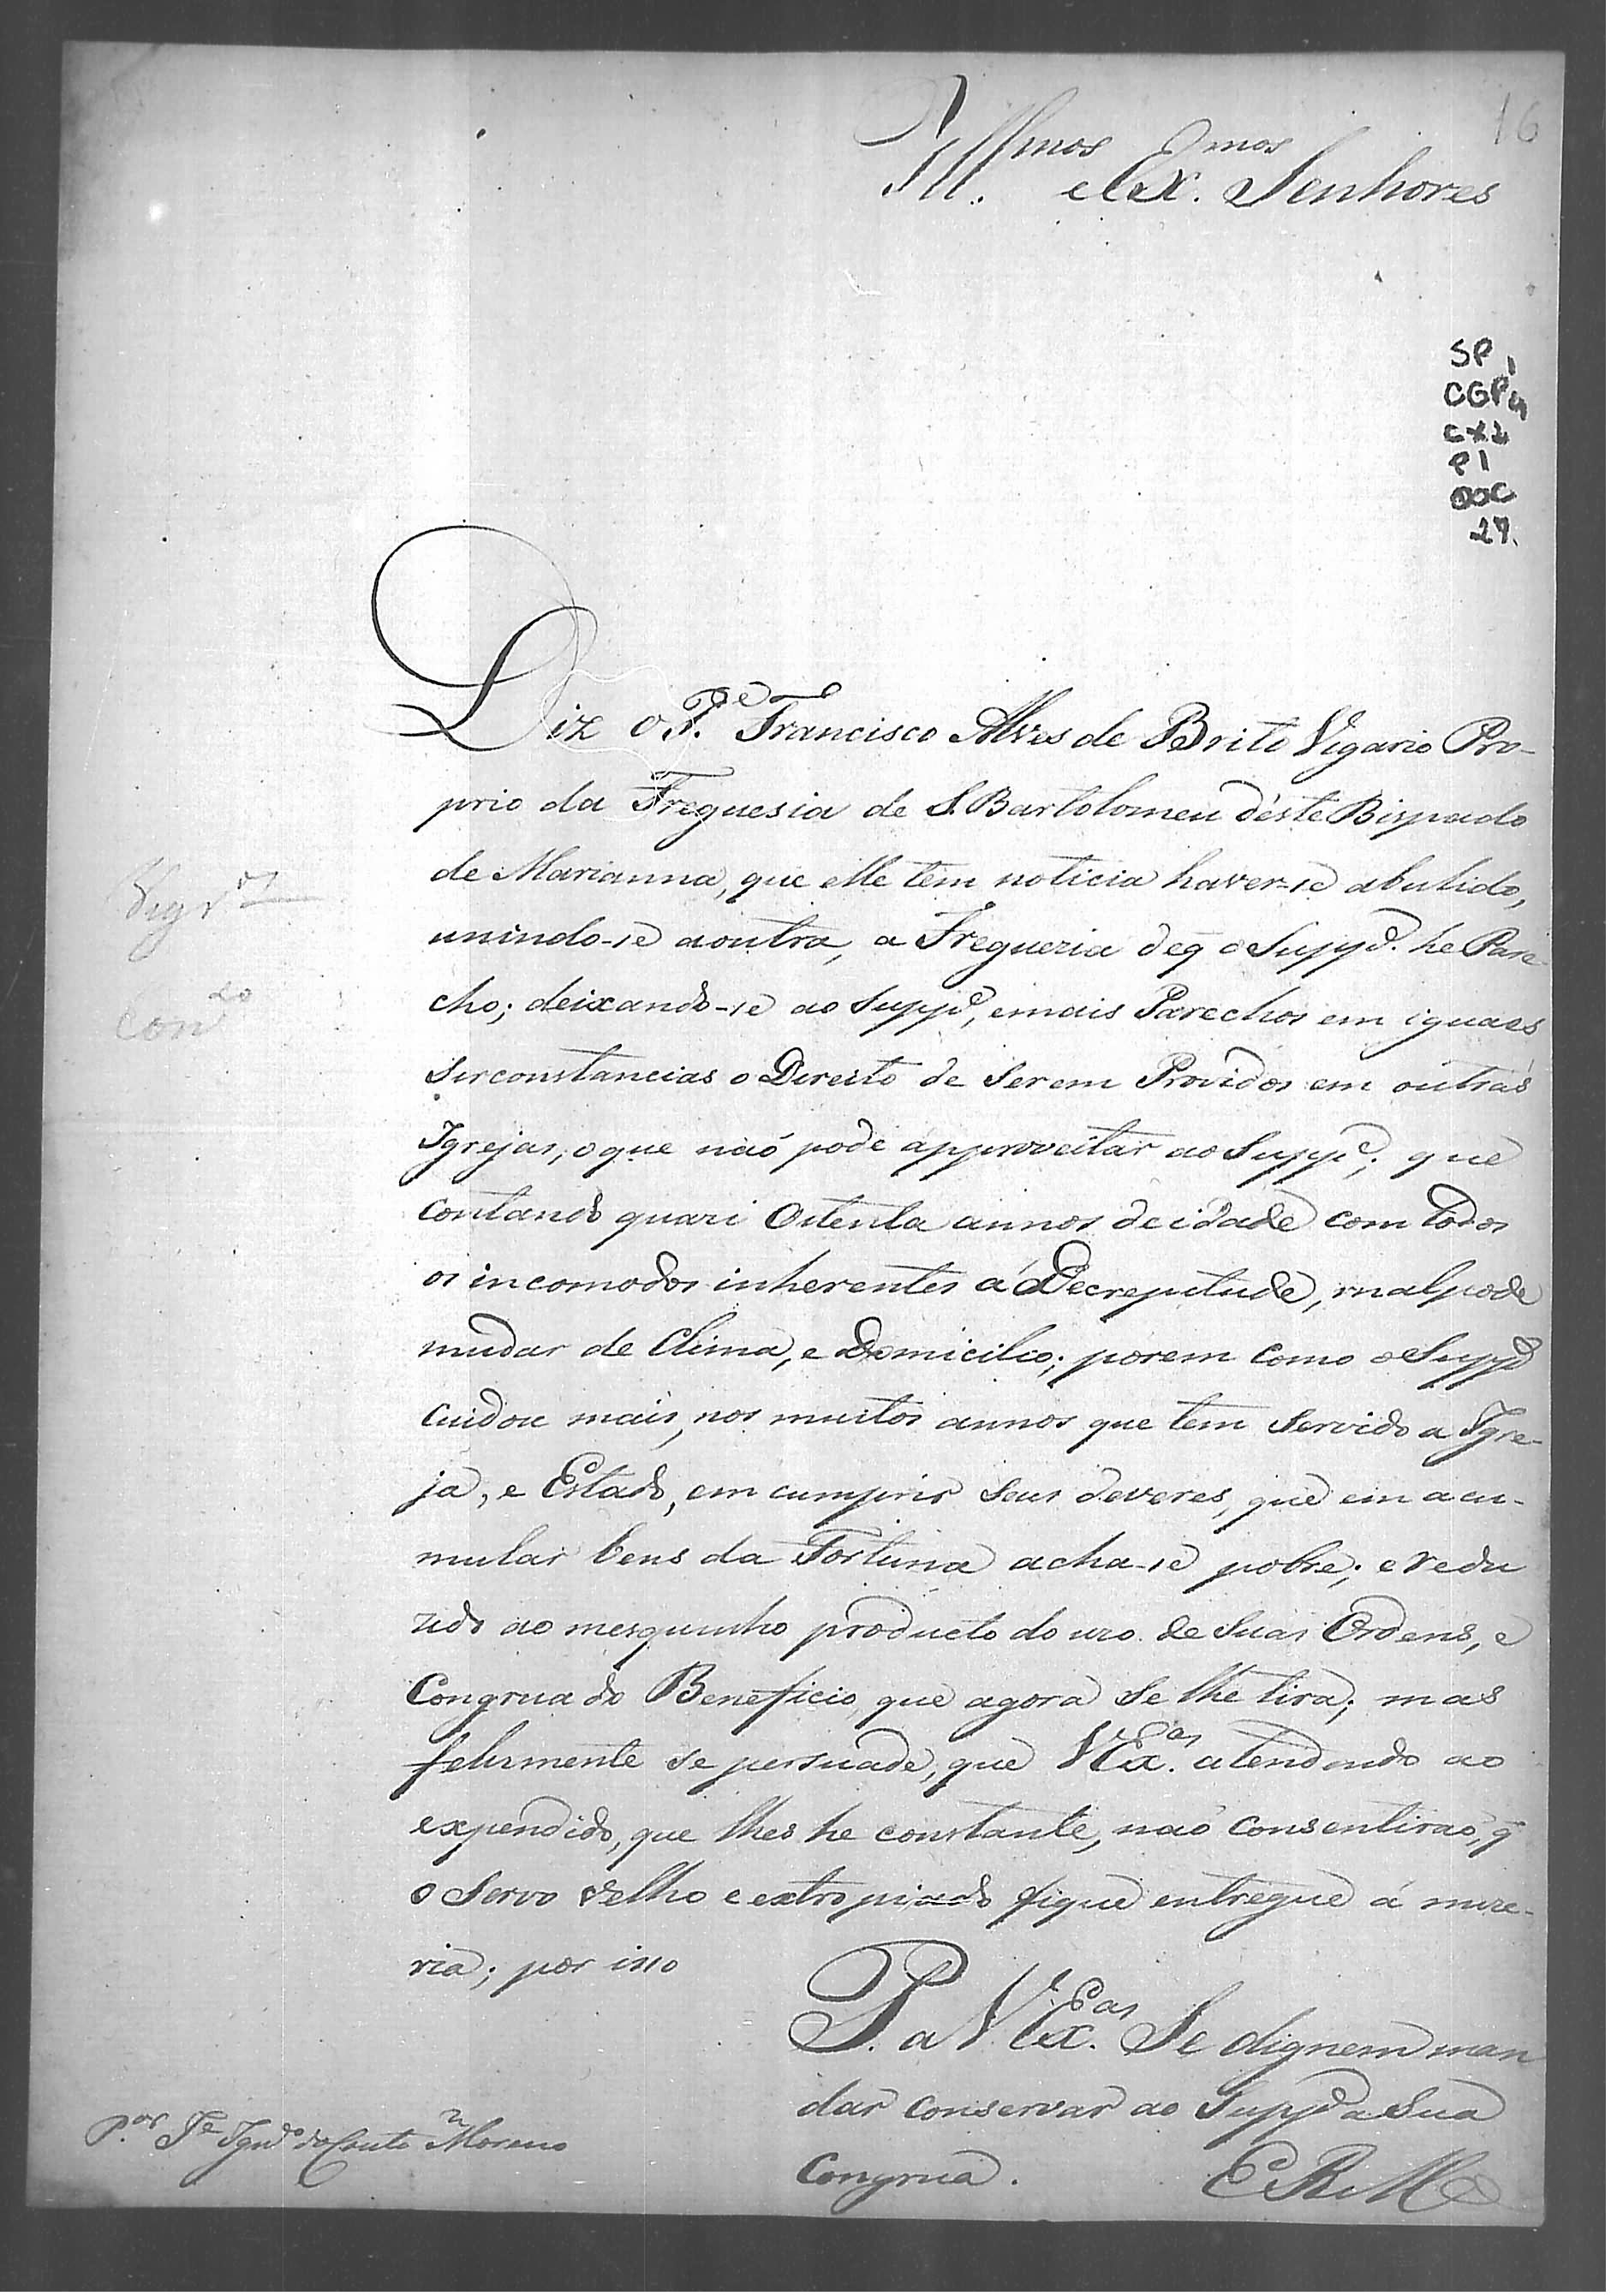 16
Ill.mos e Ex.mos Senhores
SP 1
CGP 4
CX 2
P1
DOC
27.
Diz o P.e Francisco Alves de Brito Vigario Pro-
prio da Freguesia de S. Bartolomeu d'éste Bispado
de Marianna, que elle tem noticia haver-se abulido,
unindo-se a outra, a Freguezia de q̃ o Supp.e he Paro-
cho; deixando-se ao Supp.e, e mais Parochos em iguaes
Sirconstancias o Direito de Serem Providos em outras
Igrejas, o que naõ pode approveitar ao Supp.e; que
contando quazi Oitenta annos de idade com todos
os incomodos inherentes á Decrepitude, mal pode
mudar de Clima, e Domicilio; porem como o Supp.e
cuidou mais, nos muitos annos que tem Servido a Igre-
ja, e Estado, em cumprir Seus deveres, que em acu-
mular bens da Fortuna acha-se pobre; e redu
zido ao mesquinho producto do uzo de Suas Ordens, e
Congrua do Beneficio, que agora Se lhe tira; mas
felismente Se persuade, que V.Ex.as atendendo ao
expendido, que lhes he constante, naõ Consentiraõ, q̃
o Servo velho e extropiado fique entregue á mize-
ria; por isso
P. a V.Ex.as Se dignem man
dar conservar ao Supp.e a Sua
Congrua.
E R M
Vigr.os
Con.do
P.or J.e Ign.o do Couto Moreno